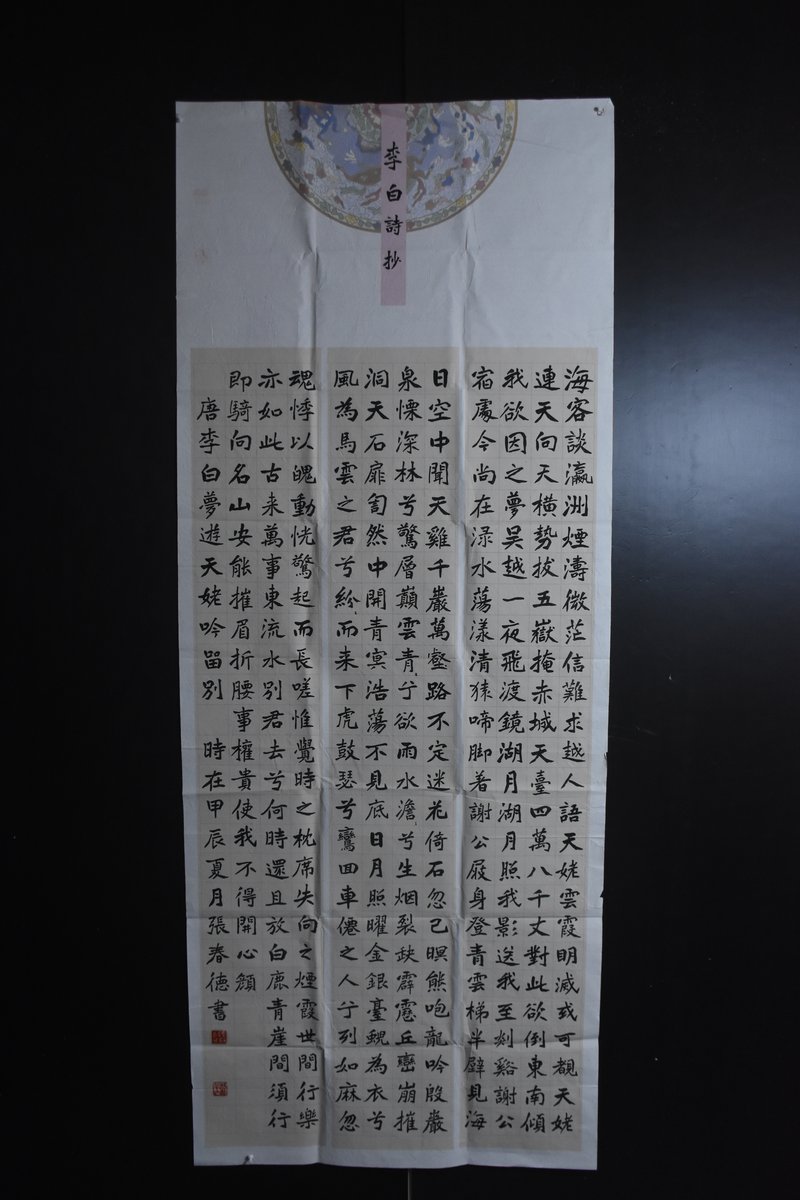 李白詩抄
海客談瀛洲煙濤微茫信難求越人語天姥雲霞明滅或可覩天姥
連天向天橫勢拔五嶽掩赤城天臺四萬八千丈對此欲倒東南傾
我欲因之夢吳越一夜飛渡鏡湖月湖月照我影送我至剡谿謝公
宿處今尚在渌水蕩漾清猿啼脚著謝公屐身登青雲梯半壁見海
日空中聞天雞千巖萬壑路不定迷花倚石忽已暝熊咆龍吟殷巖
泉慄深林兮驚層巔雲青〻兮欲雨水澹〻兮生烟裂缺霹靂丘巒崩摧
洞天石扉訇然中開青冥浩蕩不見底日月照曜金銀臺蜺為衣兮
風為馬雲之君兮紛〻而来下虎鼓瑟兮鸞回車僊之人兮列如麻忽
魂悸以魄動恍驚起而長嗟惟覺時之枕席失向之煙霞世間行樂
亦如此古来萬事東流水別君去兮何時還且放白鹿青崖間須行
即騎向名山安能摧眉折腰事權貴使我不得開心顏
唐李白夢遊天姥吟留別 時在甲辰夏月張春德書